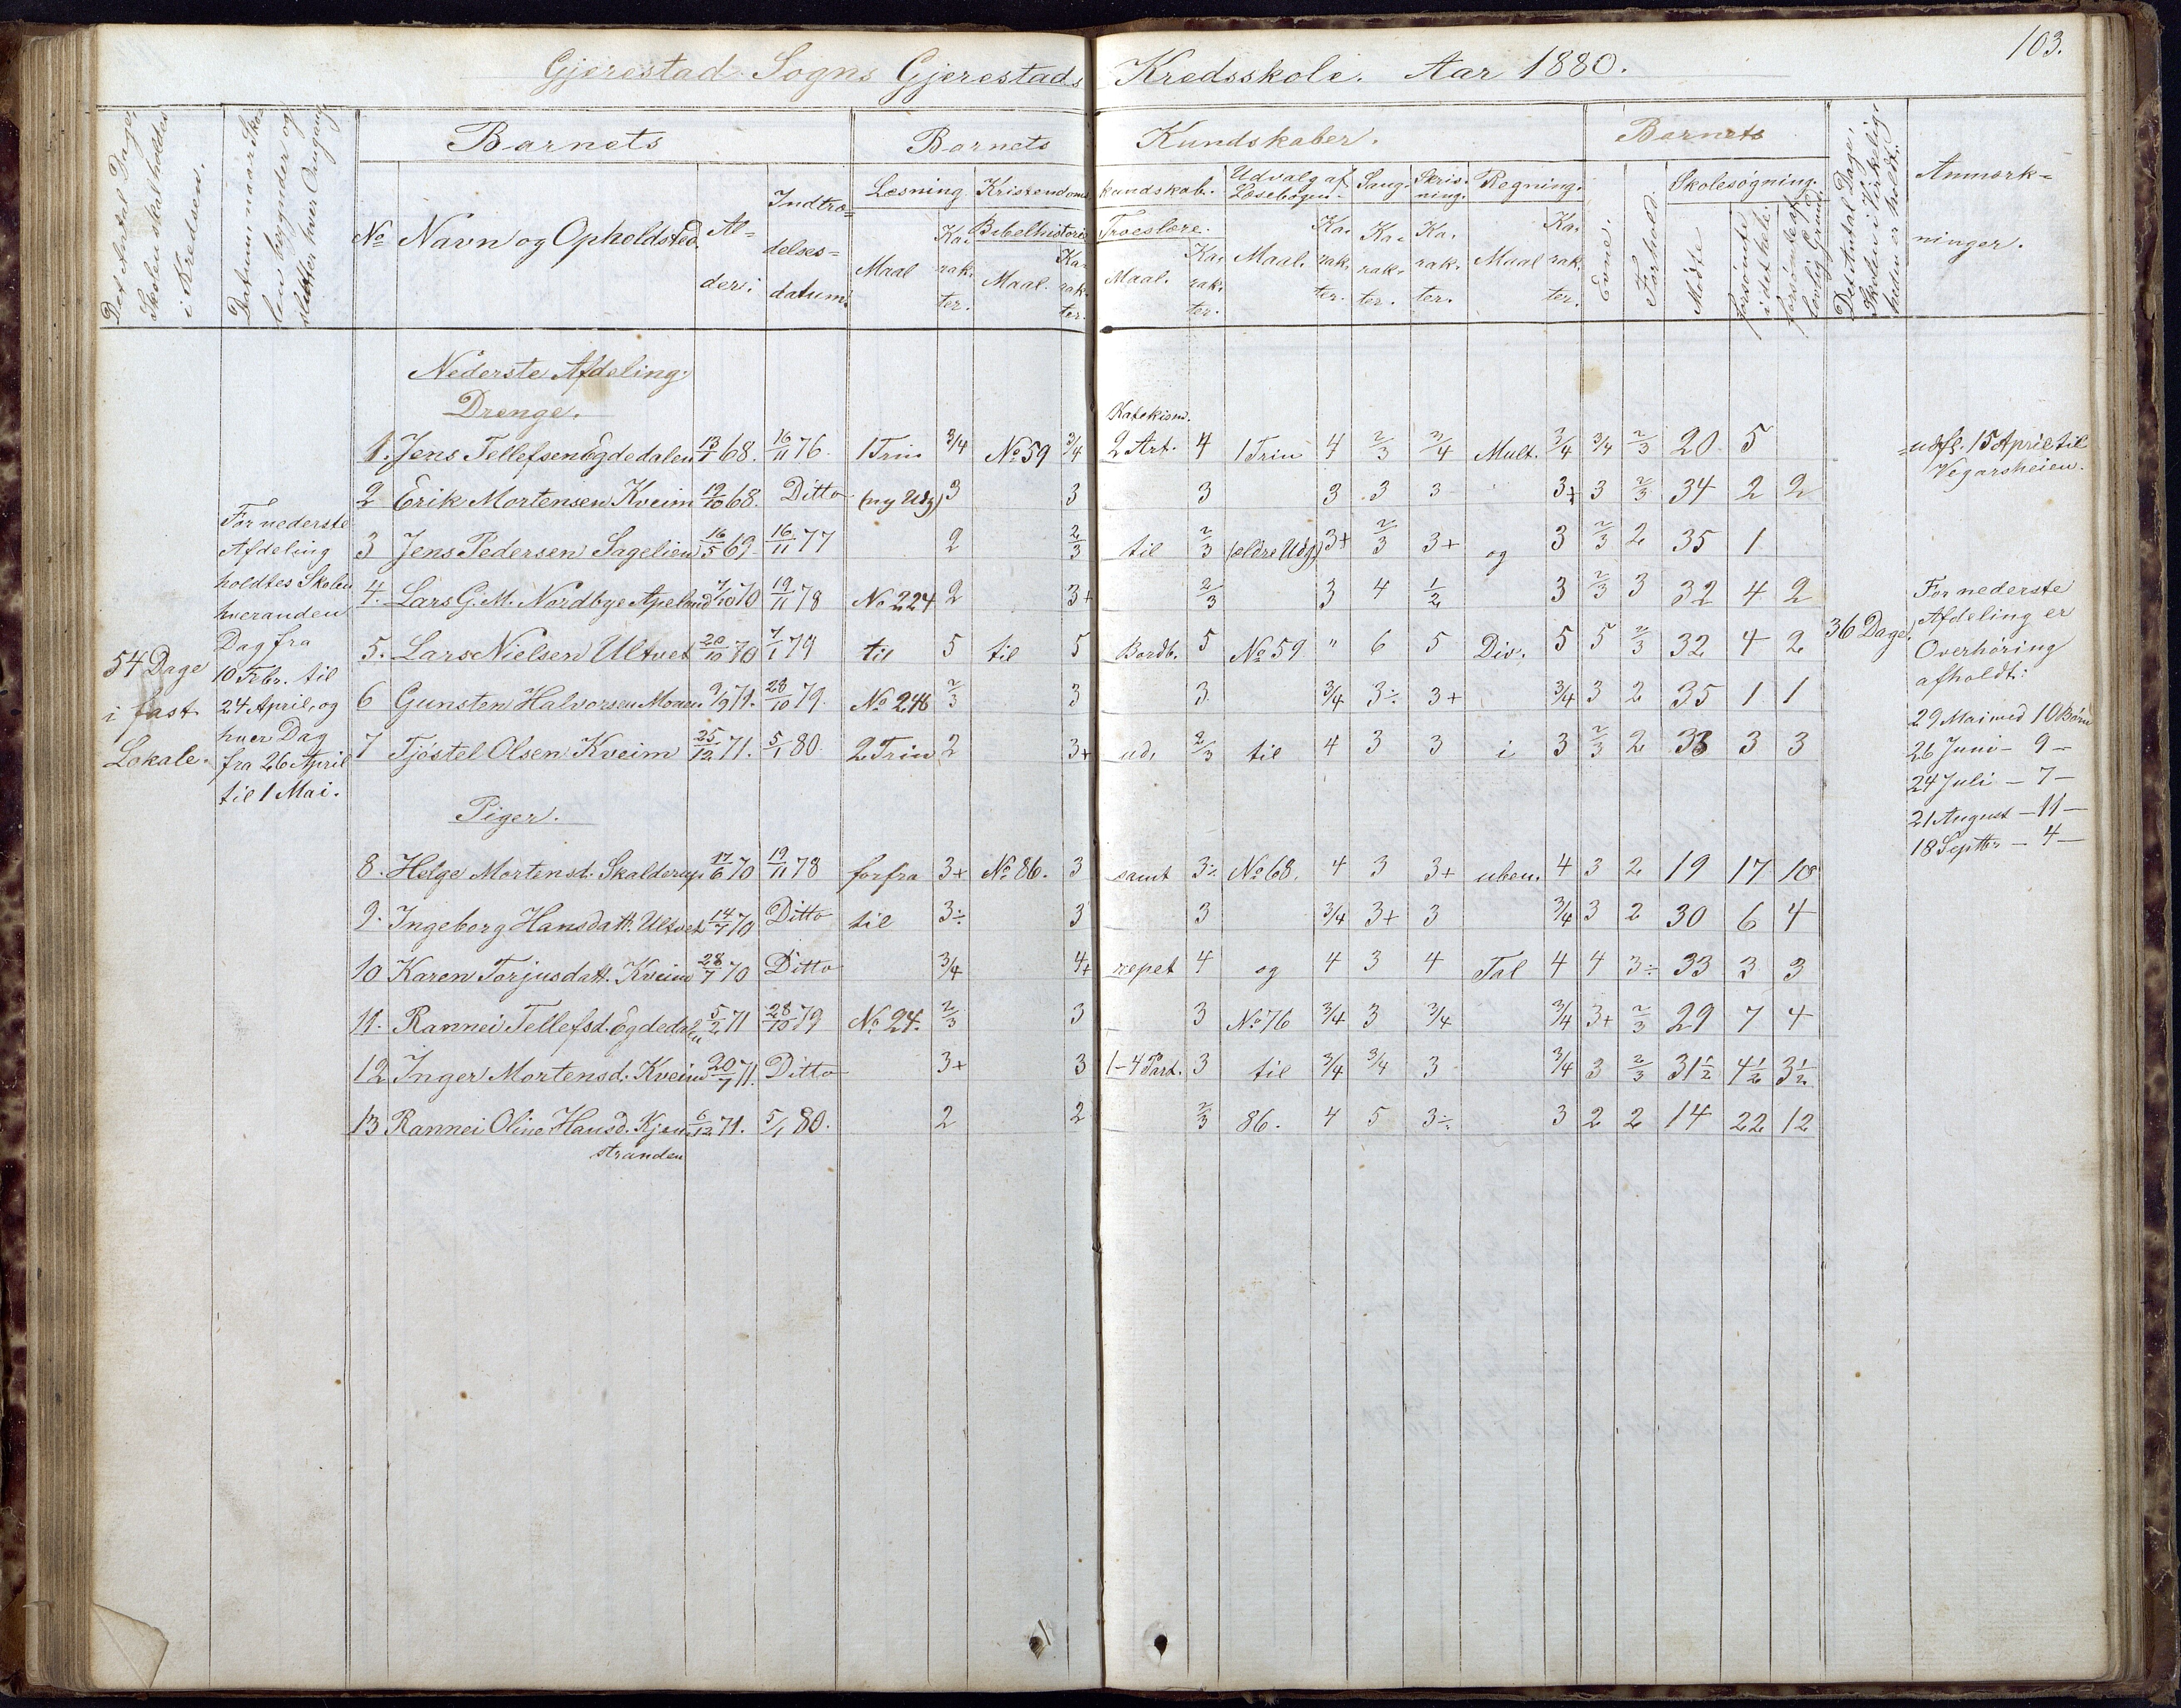 103.
Gjerestad Sogns Gjerestads Kredsskole. Aar 1880.
Det Antal Dage, Skolen skal holdes i Kredsen.
Datum, naar Skolen begynder og slutter hver Omgang
Barnets
Barnets Kundskaber.
Barnets
Det Antal Dage, Skolen i Virkeligheden er holdt.
Anmærkninger.
No Navn og Opholdsted Alder. Indtrædelsesdatum.
Læsning Kristendomskundskab. Udvalg af Læsebogen. Sang. Skrivning. Regning. Evne. Forhold. Skolesøgning.
Maal Karakter. Bibelhistorie Maal. Karakter. Troeslære. Maal. Karakter. Maal. Karakter. Karakter. Karakter. Maal Karakter. Mødte forsømte i det hele. forsømte af lovlig Grund.
Nederste Afdeling.
Drenge.
Katekism.
1. Jens Tellefsen Egdedalen 13/1 68. 16/11 76. 1 Trin 3/4 No 59 3/4 2 Art. 4 1 Trin 4 2/3 3/4 Mult. 3/4 3/4 2/3 20 5 udfl. 15 April til Vegarsheien.
2 Erik Mortensen Kveim 19/10 68. Ditto (ny Udg) 3 3 3 3 3 3 3+ 3 2/3 34 2 2
3 Jens Pedersen Sagelien 16/5 69 16/11 77 2 2/3 til 2/3 (ældre Udg) 3+ 2/3 3+ og 3 2/3 2 35 1
4. Lars G. M. Nordbye Apelnd 7/10 70 19/11 78 No 224 2 3+ 2/3 3 4 1/2 3 2/3 3 32 4 2
5. Lars Nielsen Ultvet 20/10 70 7/1 79 til 5 til 5 Bordb. 5 No 59 " 6 5 Div. 5 5 2/3 32 4 2
6 Gunsten Halvorsen Moen 9/9 71. 28/10 79. No 248 2/3 3 3 3/4 3÷ 3+ 3/4 3 2 35 1 1
7 Tjøstel Olsen Kveim 25/12 71. 5/1 80. 2 Trin 2 3+ ud, 2/3 til 4 3 3 i 3 2/3 2 33 3 3
Piger.
8. Helge Mortensd. Skalderup 17/6 70 19/11 78 forfra 3+ No 86. 3 samt 3÷ No 68. 4 3 3+ uben. 4 3 2 19 17 10
9. Ingeborg Hansdatt. Ultvet 14/7 70 Ditto til 3÷ 3 3 3/4 3+ 3 3/4 3 2 30 6 4
10 Karen Torjusdatt. Kveim 28/7 70 Ditto 3/4 4+ repet 4 og 4 3 4 Tal 4 4 3÷ 33 3 3
11. Rannei Tellefsd. Egdedalen 5/2 71 28/10 79 No 24. 2/3 3 3 No 76 3/4 3 3/4 3/4 3+ 2/3 29 7 4
12 Inger Mortensd. Kveim 20/7 71. Ditto 3+ 3 1-4 Part. 3 til 3/4 3/4 3 3/4 3 2/3 31½ 4½ 3½
13 Rannei Oline Hansd. Kjenstranden 6/12 71. 5/1 80. 2 2 2/3 86. 4 5 3÷ 3 2 2 14 22 12
54 Dage
i fast
Lokale.
For nederste
Afdeling
holdtes Skolen
hveranden
Dag fra
10 Febr. til
24 April, og
hver Dag
fra 26 April
til 1 Mai.
36 Dage.
For nederste
Afdeling er
Overhøring
afholdt:
29 Mai med 10 Børn
26 Juni - 9 -
24 Juli - 7 -
21 August - 11 -
18 Septbr - 4 -